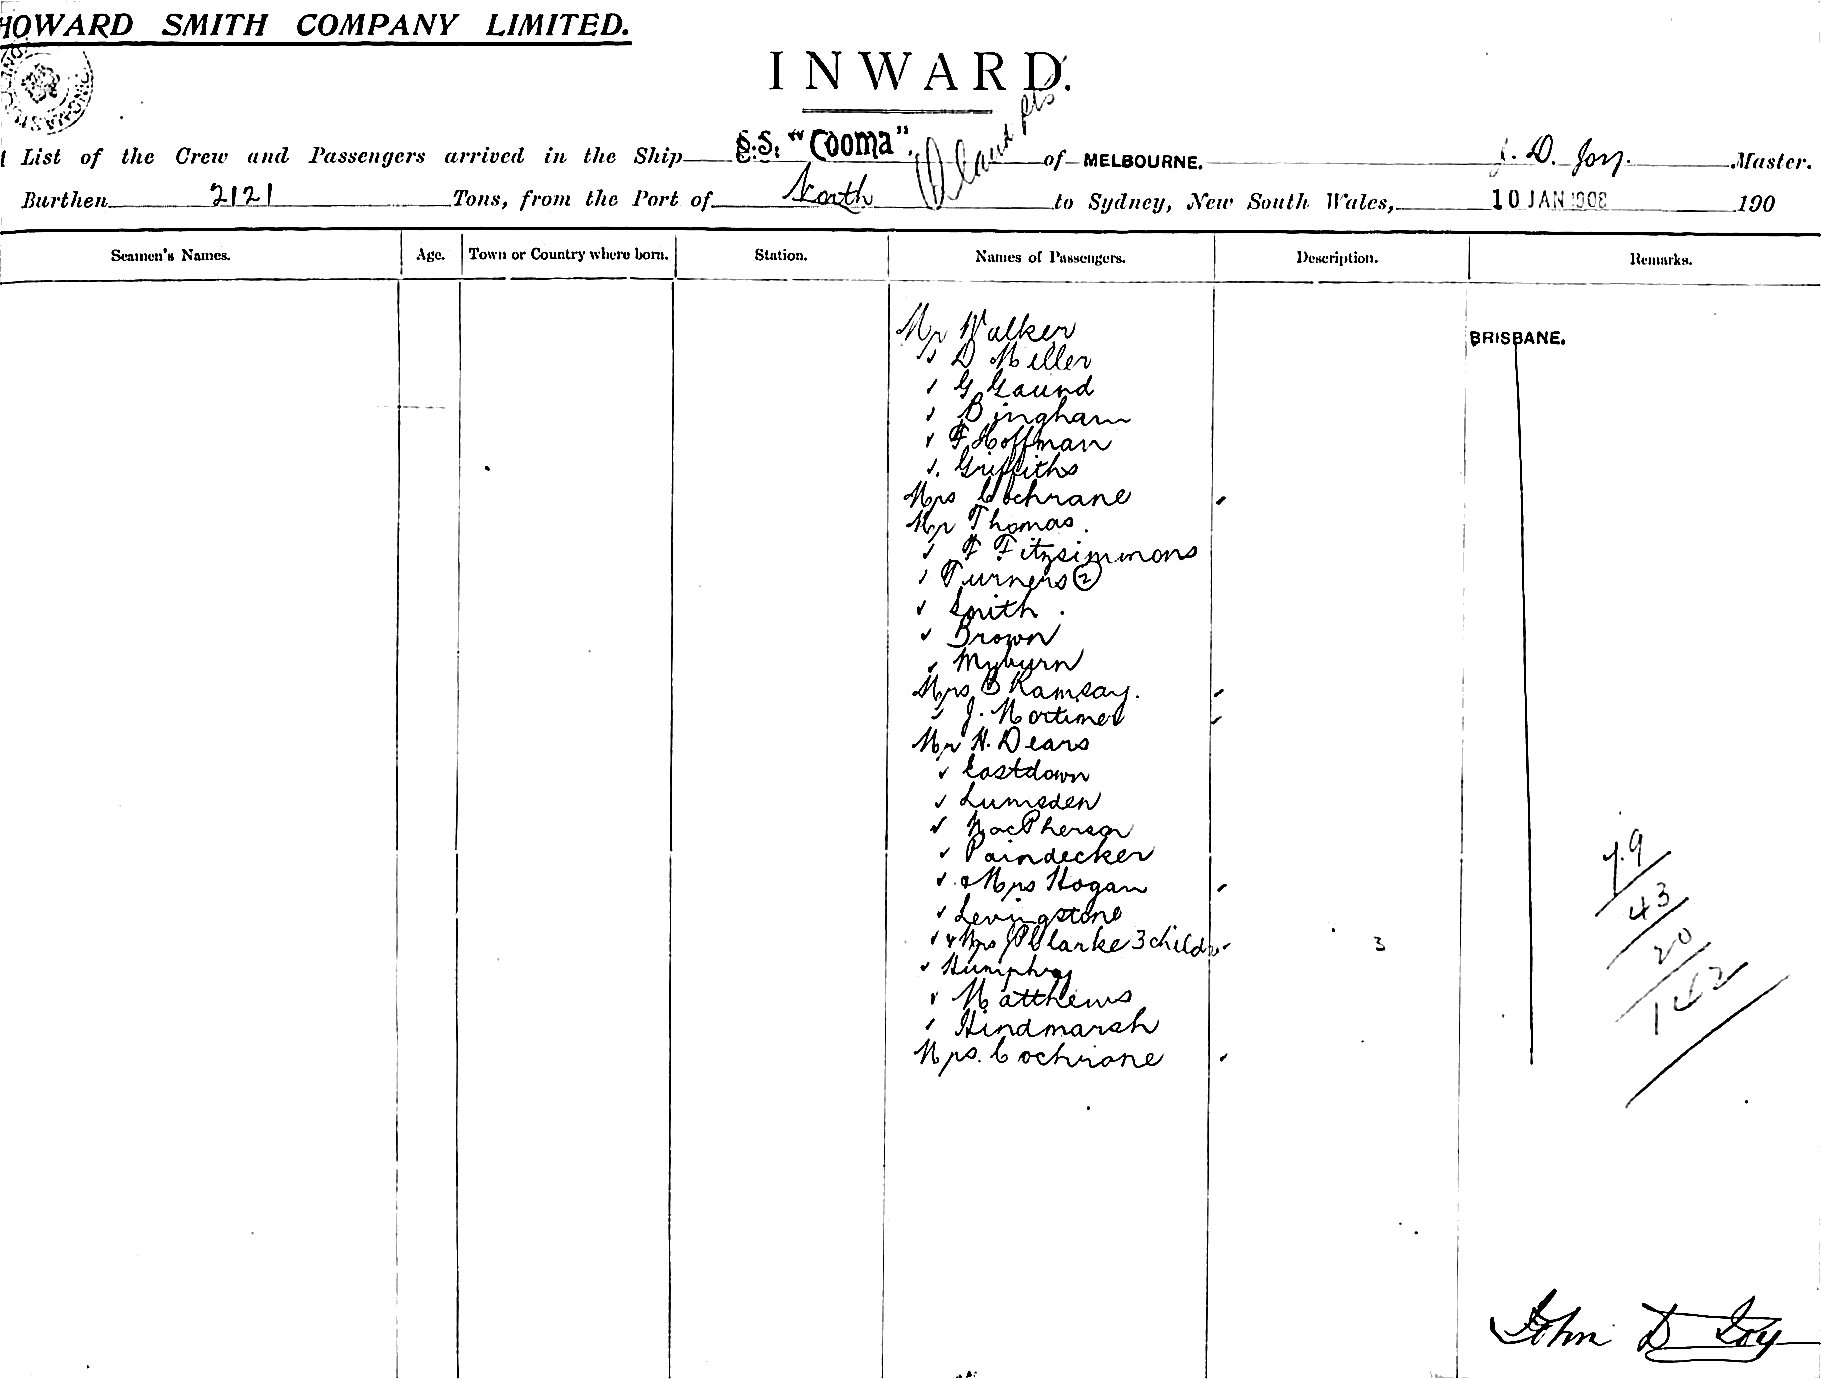 HOWARD SMITH COMPANY LIMITED.
INWARD.
List of the Crew and Passengers arrived in the Ship S.S. "Cooma". of MELBOURNE. J. D. Joy. Master.
Burthen 2121 Tons, from the Port of North Qland pts to Sydney, New South Wales, 10 JAN 1908 190
Seamen's Names. Age. Town or Country where born. Station. Names of Passengers. Description. Remarks.
Mr Walker BRISBANE.
" D Miller
" G Gaund
" Bingham
" F Hoffman
" Griffiths
Mrs Cochrane
Mr Thomas.
" F Fitzsimmons
" Turners 2
" Smith
" Brown
" Myburn
Mrs Ramsay.
" J. Mortimer
Mr H. Dears
" Eastdown
" Lumsden
" MacPherson
" Paindecker
" & Mrs Hogan
" Levingstone
" & Mrs Clarke 3 childr 3
" Humphrey
" Matthews
" Hindmarsh
Mrs. Cochrane
79
43
20
142
John D Joy